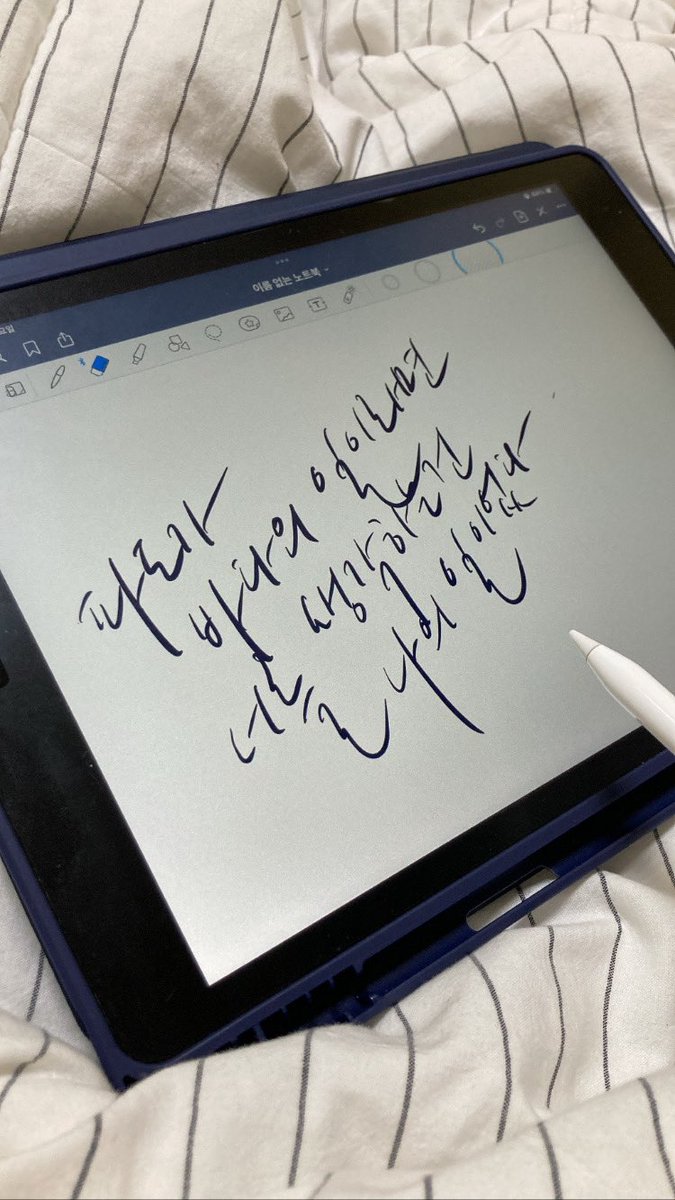 요일
이름 없는 노트북
파도가
바다의 일이라면
너를 생각하는 건
나의 일이었다